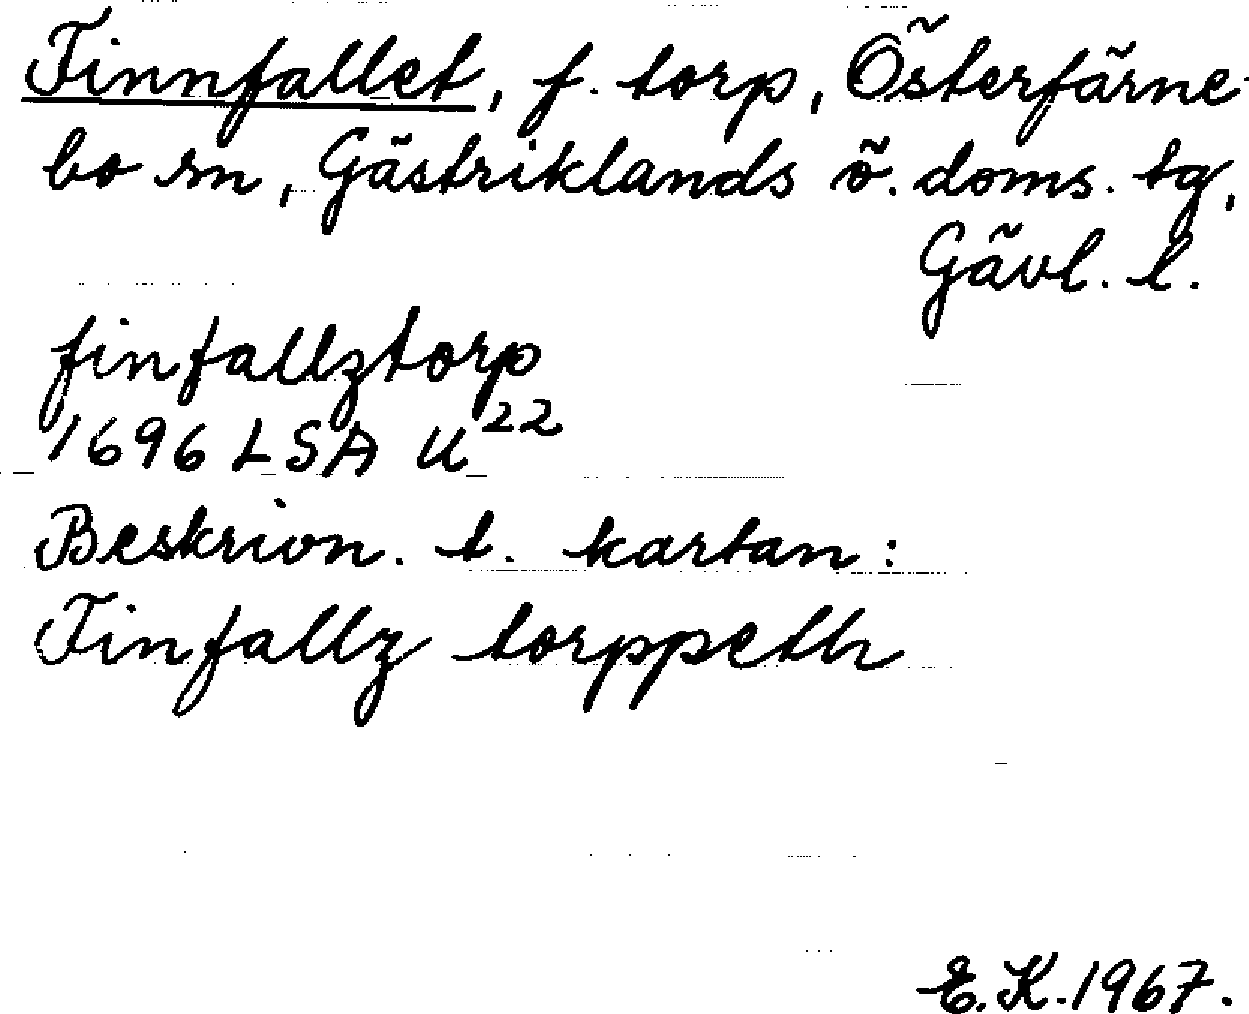 Finnfallet, f. torp, Österfärne-
bo sn, Gästriklands ö. doms. tg,
Gävl. l.
finfallztorp
1696 LSA U²²
Beskrivn. t. kartan:
Finfallz torppeth
E.K. 1967.